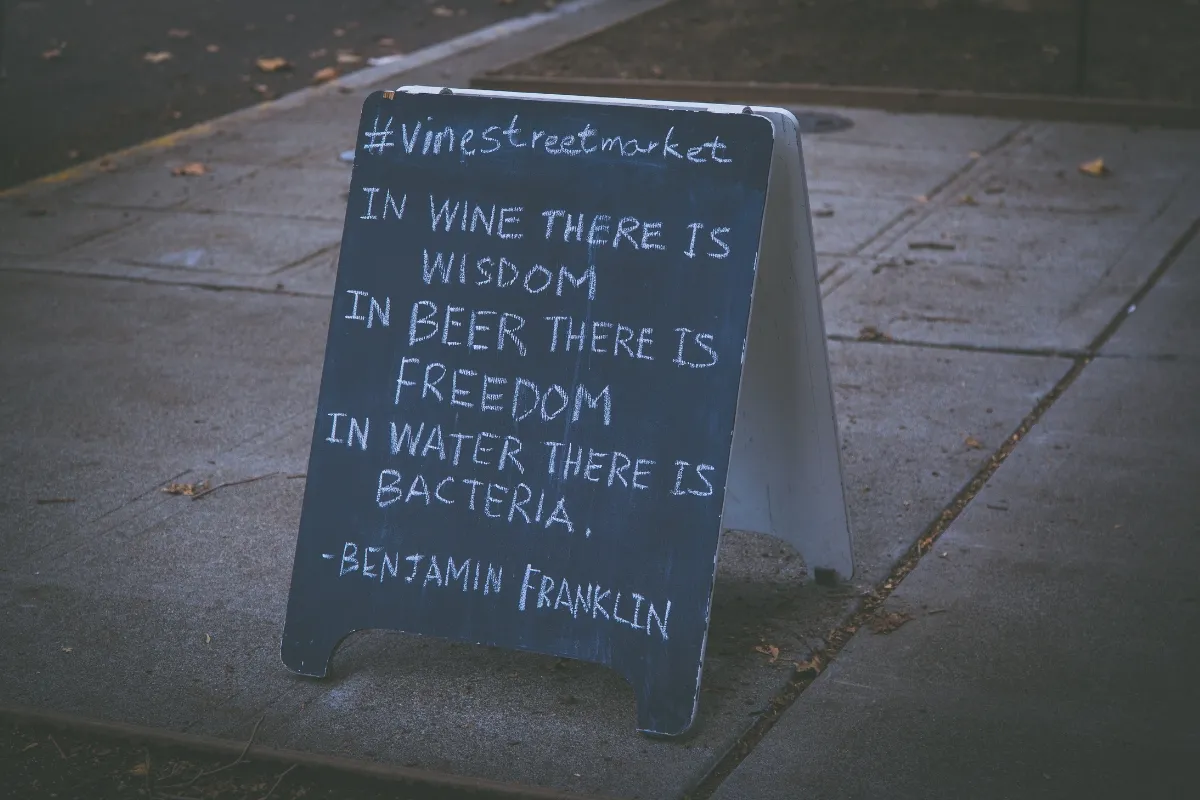 #Vinestreetmarket
IN WINE THERE IS
WISDOM
IN BEER THERE IS
FREEDOM
IN WATER THERE IS
BACTERIA.
-BENJAMIN FRANKLIN